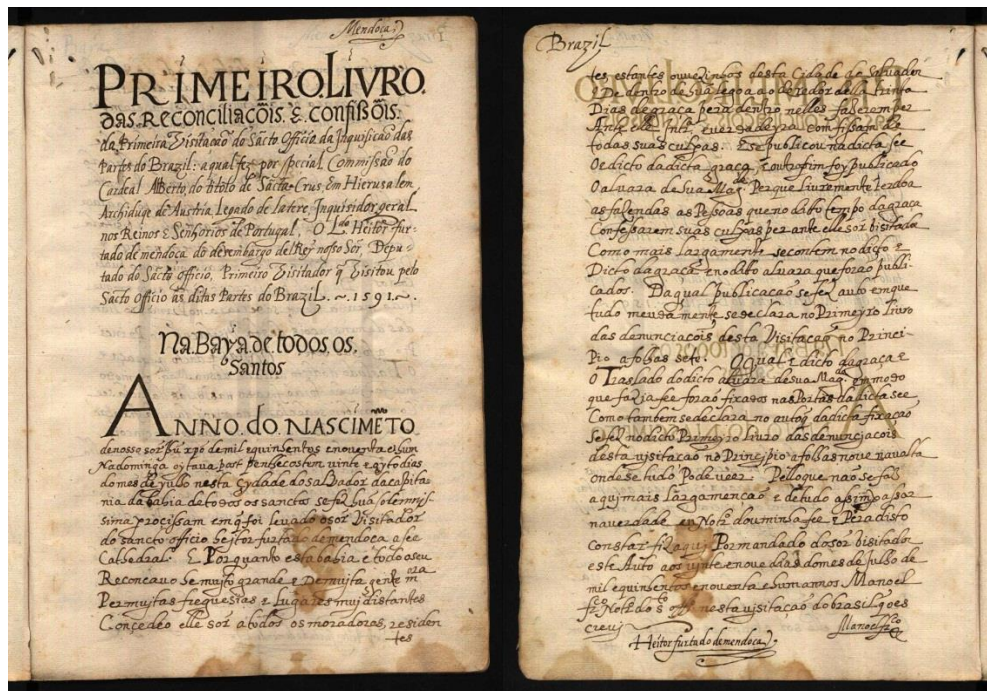 Mendoça
PRIMEIRO.LIVRO.
das.reconciliaçõis.&.confissõis.
da Primeira Visitação do Sãcto Officio da Inquisição das
Partes do Brazil: a qual fez por special Commissão do
Cardeal Alberto do titolo de Sãcta Crus, Em Hierusalem
Archiduque de Austria, Legado de latere, Inquisidor geral
nos Reinos & Senhorios de Portugal, O Ldo Heitor fur-
tado de mendoça do desembargo del Rey nosso Sor, Depu-
tado do Sãcto officio, Primeiro Visitador q̃ visitou pelo
Sãcto Officio as ditas Partes do Brazil. ~.1591.~.
Na.Baya.de.todos.os.
Santos
ANNO.do.NASCIMẽTO
de nosso sor de mil e quinhentos e noventa e hum
Na dominga oytava post penthecostem vinte e oyto dias
do mes de yulho nesta cydade do salvador da capita-
nia da bahia de todos os sanctos se fez hũa solemnis-
sima procissam em q̃ foi levado o sor Visitador
do sancto officio heitor furtado de mendoca a see
Cathedral. E Porquanto esta bahia e todo o seu
Reconcavo he mujto grande e De mujta gente mora
Per mujtas freguesias e Lugares muj distantes
Concedeo elle sor a todos os moradores, residen
tes
Brazil
tes, estantes ou vezinhos desta Cidade do Salvador
& De dentro de hũa legoa ao derredor della trinta
Dias de graça pera dentro nelles fazerem per
Ante elle Intr.ª e verdadeyra comfissam de
todas suas culpas. E se publicou na dicta see
O edicto da dicta graça, & outrosim foy publicado
O alvara de sua Mag.de Per que livremente Perdoa
as fazendas as Pessoas que no ditto tempo da graça
Confessarem suas culpas perante elle sor bisitador
Como mais largamente se contem no dicto e
Dicto da graça e no ditto alvara que forão publi-
cados. Da qual publicacaõ se fez auto em que
tudo meudamente se declara no Primeyro livro
das denunciaçoĩs desta Visitação no Princi-
Pio a folhas sete. O qual edicto da graça e
O Traslado do dicto alvara de sua Mag.de em modo
que fazia fee foraõ fixados nas Portas da dicta see,
Como tambem se declara no auto q̃ da dicta fixação
se fez no dicto Primeyro livro das denunciacois
desta visitação no Principio a folhas nove na volta
onde se tudo Pode veer. Pello que não se faz
aqui mais larga mençaõ e de tudo assim passar
na verdade eu Not.º dou minha fee e Pera disto
constar fiz aqui Por mandado do sor bisitador
este Auto aos vynte e nove dias do mes de Julho de
mil e quinhentos e noventa e hum annos Manoel
frco Not.º do s. offº nesta visitação do brasil q̃ o es
crevi
Heitor furtado de mendoça
Manoel frco